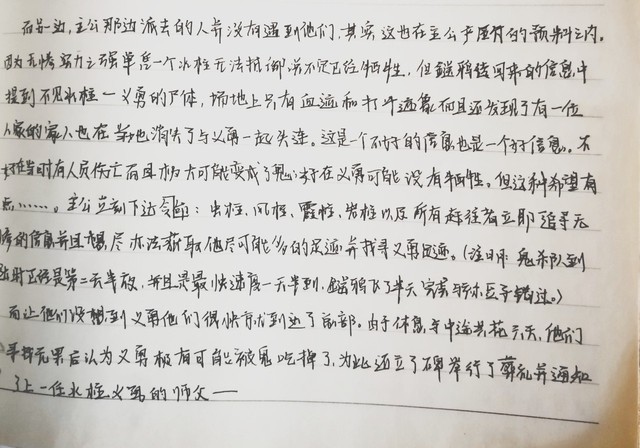 而另一边,主公那边派去的人并没有遇到他们,其实这也在主公产屋敷的预料之内。
因为无惨实力之强单凭一个水柱无法抵御说不定已经牺牲,但鎹鸦传回来的信息中
提到不见水柱一义勇的尸体,场地上只有血迹和打斗迹象而且还发现了有一位
人家的家人也在当地消失了与义勇一起失连。这是一个不好的信息也是一个好信息。不
好在当时有人员伤亡而且极大可能变成了鬼;好在义勇可能没有牺牲。但这种希望有
点……。主公立刻下达命令:虫柱、风柱、霞柱、岩柱以及所有赶往者立即追寻无
惨的信息并且想尽办法获取他尽可能多的足迹并找寻义勇足迹。(注明:鬼杀队到
出时已经是第二天半夜,并且是最快速度一天半到,鎹鸦飞了半天 完美与弥豆子错过。)
而让他们没想到义勇他们很快就到达了 部。由于休息与中途共花三天,他们
寻找无果后认为义勇极有可能被鬼吃掉了,为此还立了碑举行了葬礼并通知
了上一任水柱义勇的师父——